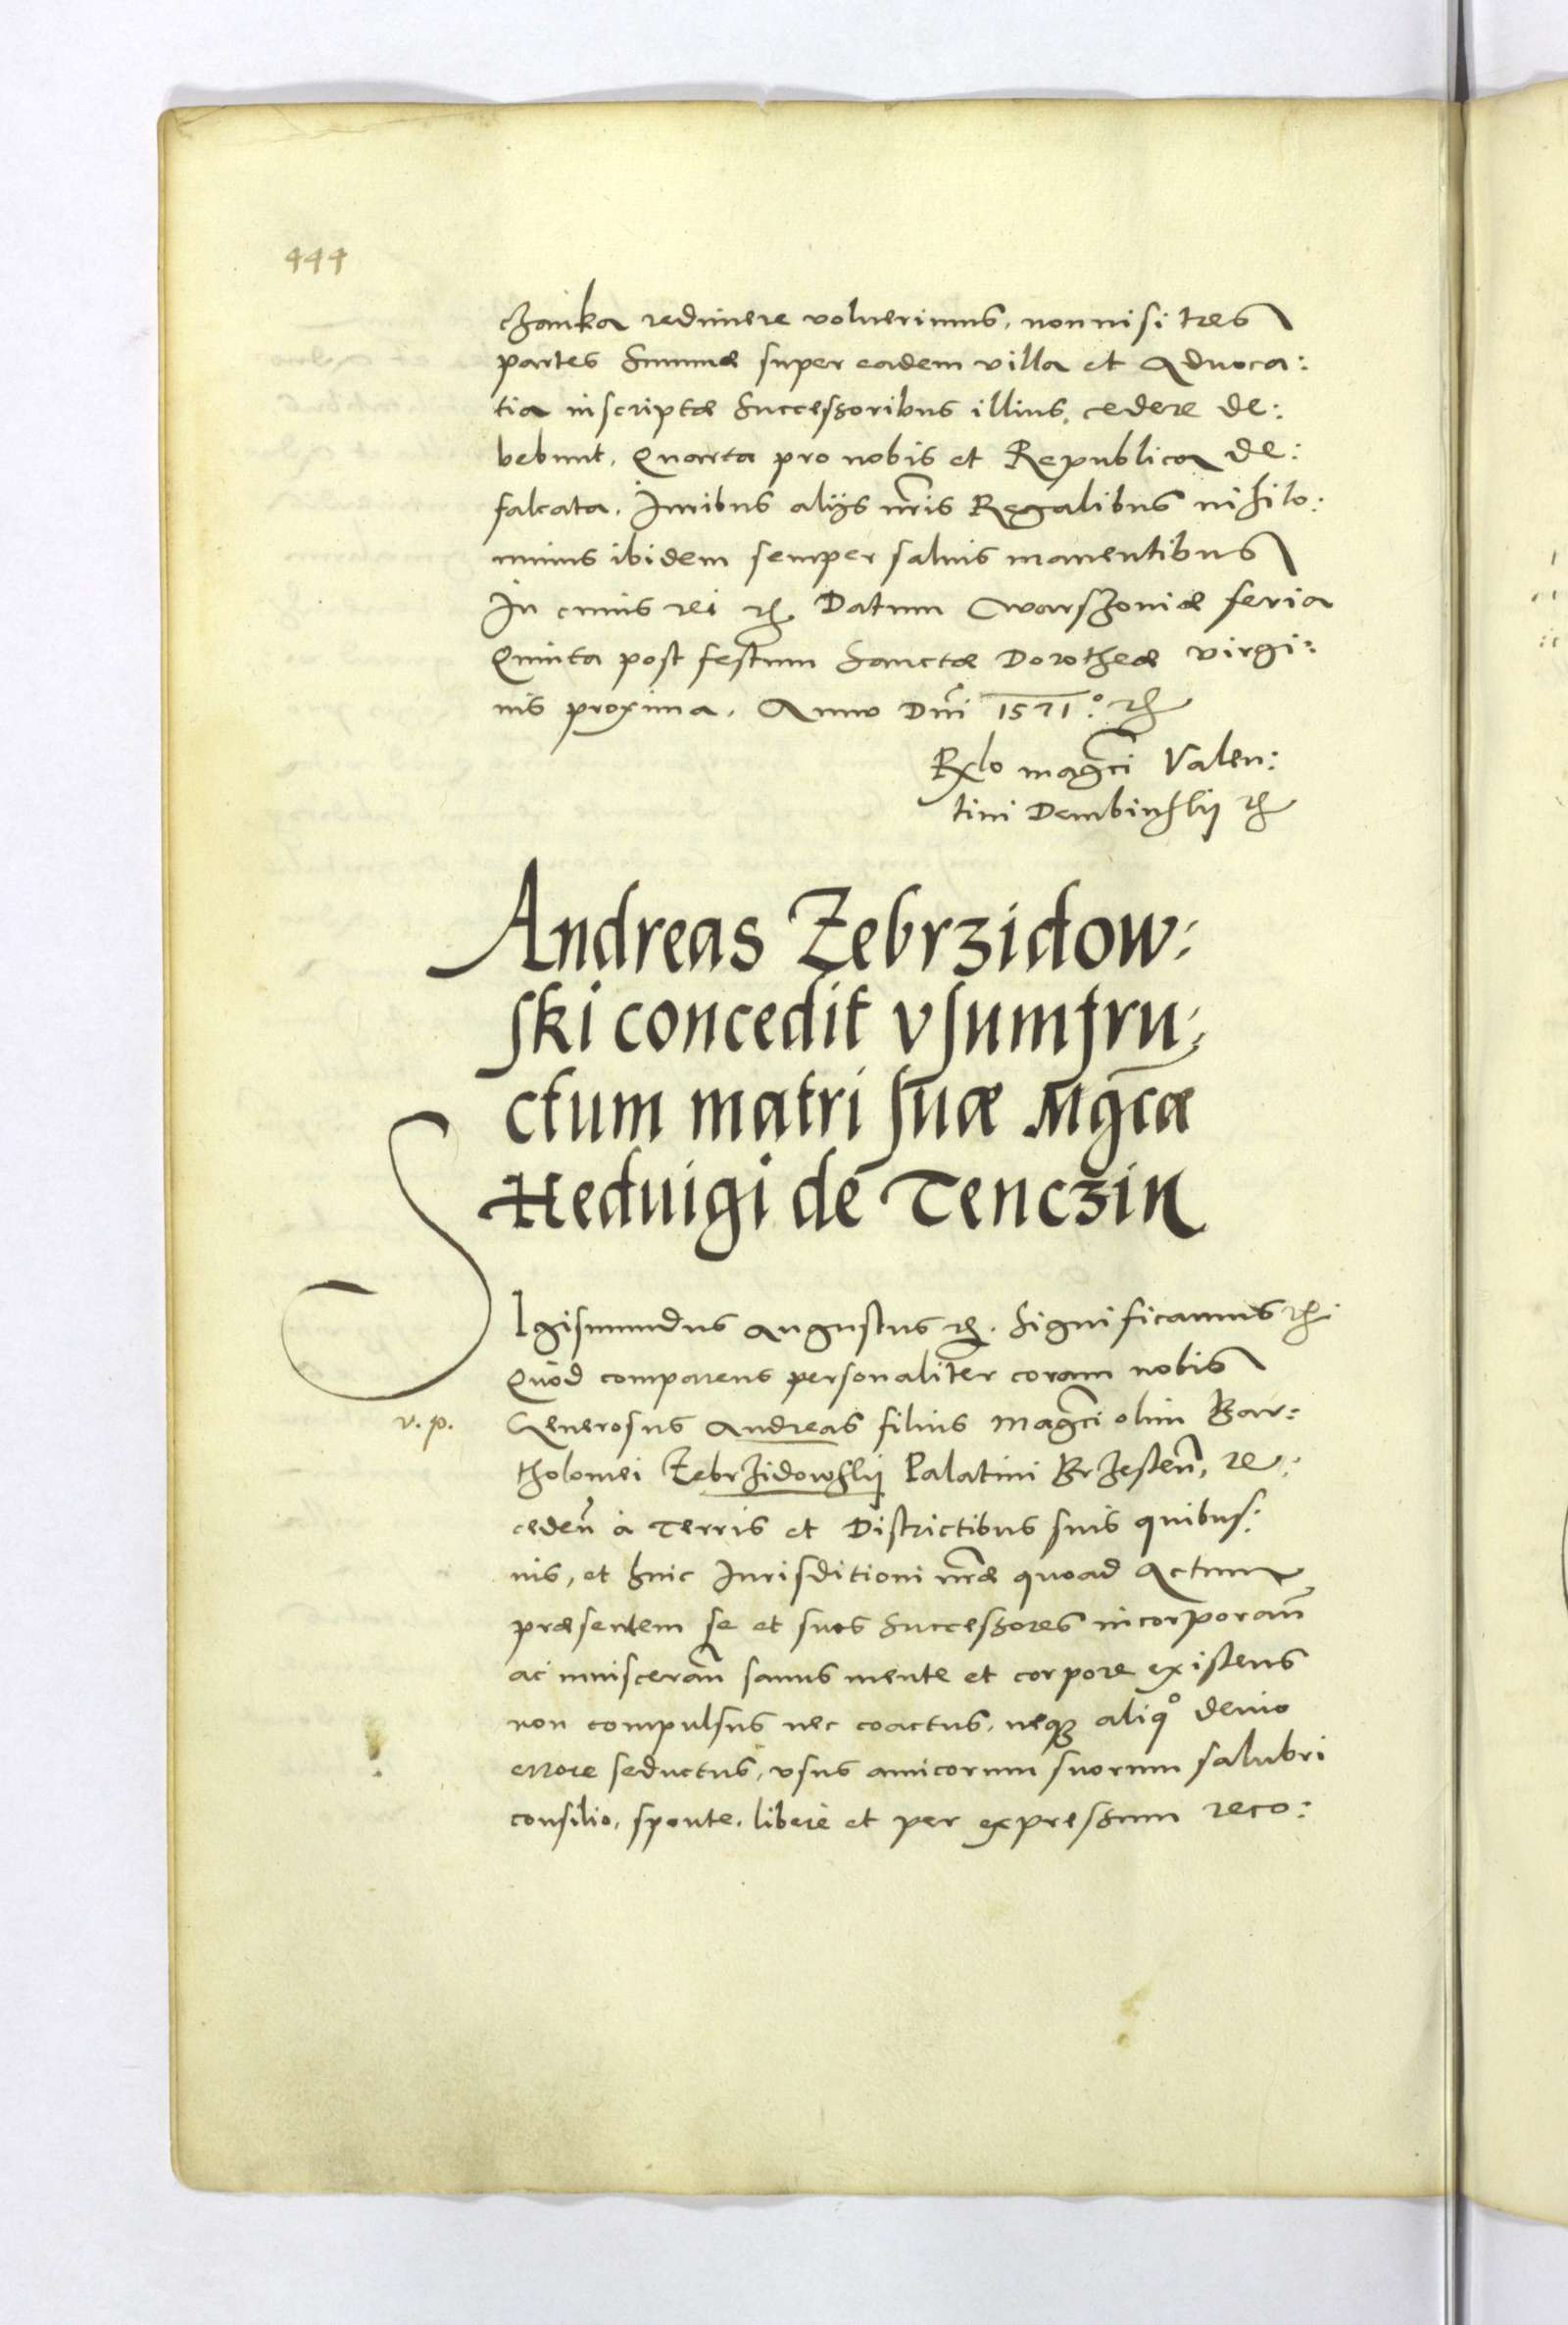 444
czanka redimere voluerimus, nonnisi tres
partes Summæ super eadem villa et Aduoca:
tia inscriptæ Successoribus illius, cedere de:
bebunt, Quarta pro nobis et Republica de:
falcata. Iuribus alijs nr̃is Regalibus nihilo:
minus ibidem semper saluis manentibus
In cuius rei etc. Datum Warszouiæ feria
Quinta post festum Sanctæ Dorotheæ virgi:
nis proxima. Anno Dñi 1571º. etc.
Rxlo magc̃i Valen:
tini Dembinskij etc.
Andreas Zebrzidow:
ski concedit vsumfru:
ctum matri suæ Mgc̃æ
Heduigi de Tenczin
SIgismundus Augustus etc. Significamus etc.
Quod comparens personaliter coram nobis
v. p. Generosus Andreas filius Magc̃i olim Bar:
tholomei Zebrzidowskij Palatini Brzesteñ, re:
cedeñ à Terris et Districtibus suis quibus:
uis, et huic Iurisditioni nr̃æ quoad Actum
præsentem se et suos Successores incorporañ
ac inuiscerañ sanus mente et corpore existens
non compulsus nec coactus, neqȝ aliqº deuio
errore seductus, vsus amicorum suorum salubri
consilio, sponte, liberè et per expressum reco: